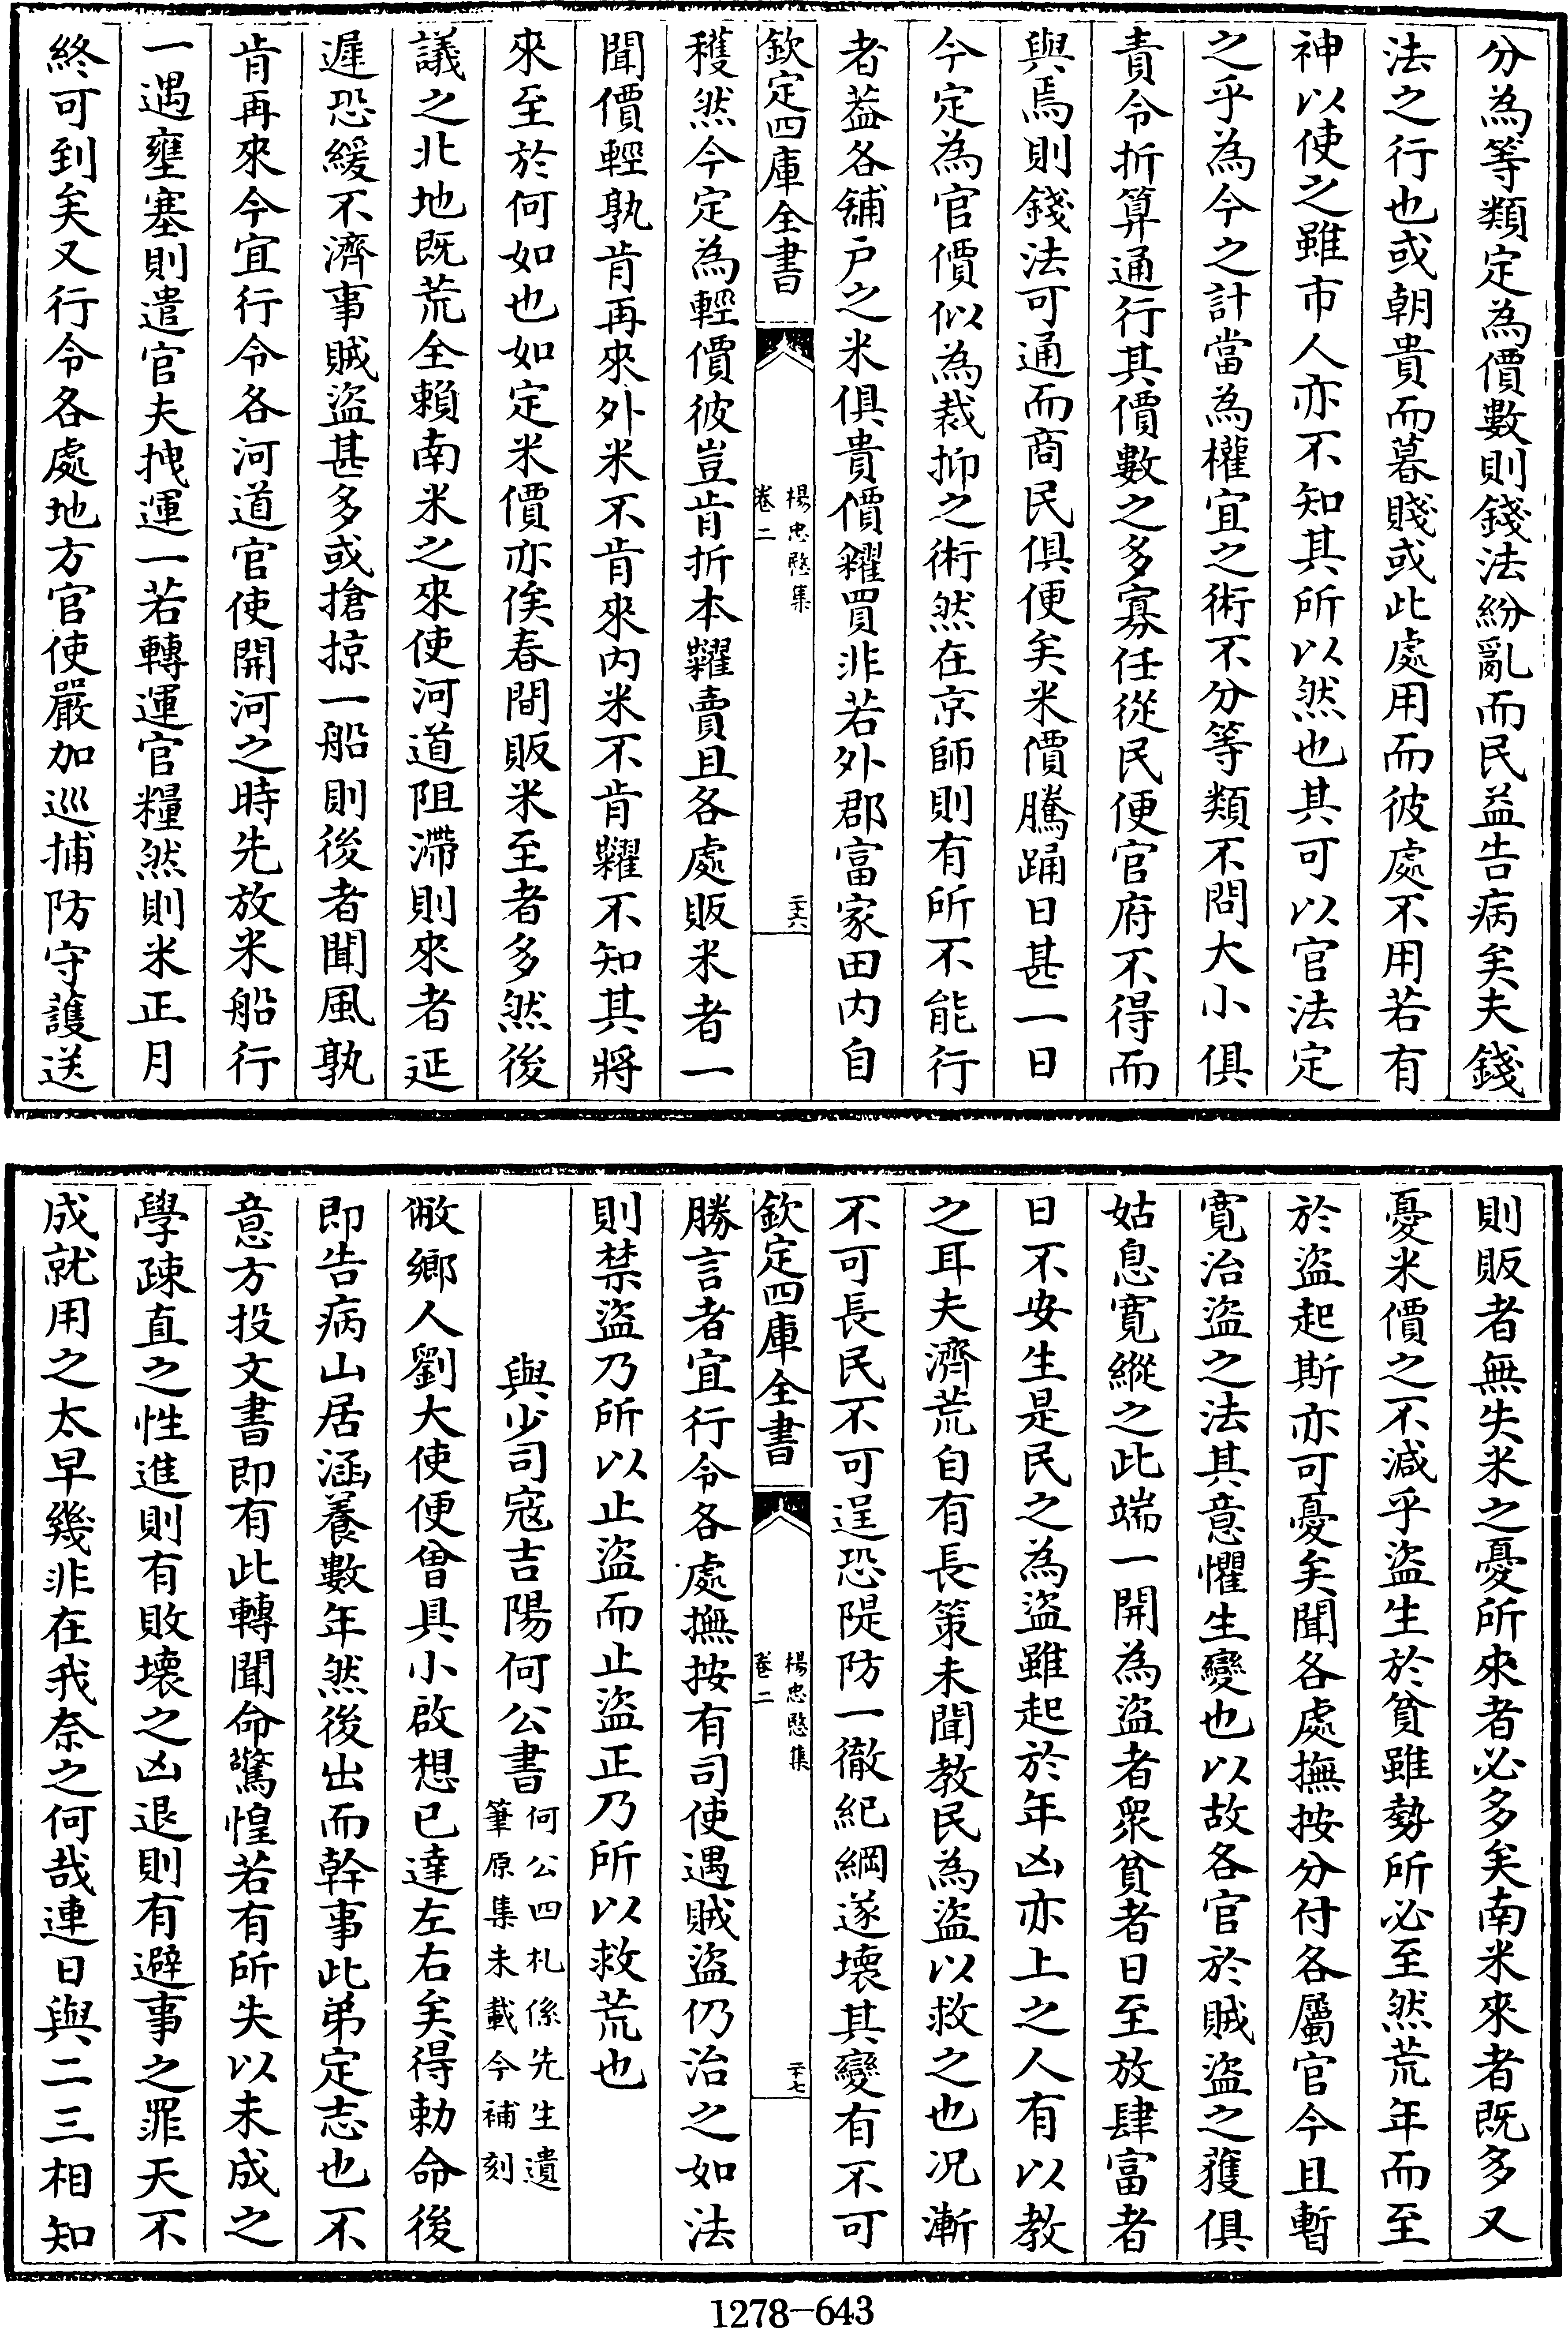 分為等類定為價數則錢法紛亂而民益告病矣夫錢
法之行也或朝貴而暮賤或此處用而彼處不用若有
神以使之雖市人亦不知其所以然也其可以官法定
之乎為今之計當為權宜之術不分等類不問大小俱
責令折算通行其價數之多寡任從民便官府不得而
與焉則錢法可通而商民俱便矣米價騰踊日甚一日
今定為官價似為裁抑之術然在京師則有所不能行
者葢各舖戶之米俱貴價糴買非若外郡富家田内自
欽定四庫全書
楊忠愍集
卷二
二十六
穫然今定為輕價彼豈肯折本糶賣且各處販米者一
聞價輕孰肯再來外米不肯來内米不肯糶不知其將
來至於何如也如定米價亦俟春間販米至者多然後
議之北地既荒全賴南米之來使河道阻滯則來者延
遲恐緩不濟事賊盜甚多或搶掠一船則後者聞風孰
肯再來今宜行令各河道官使開河之時先放米船行
一遇壅塞則遣官夫拽運一若轉運官糧然則米正月
終可到矣又行令各處地方官使嚴加巡捕防守護送
則販者無失米之憂所來者必多矣南米來者既多又
憂米價之不減乎盜生於貧雖勢所必至然荒年而至
於盜起斯亦可憂矣聞各處撫按分付各屬官今且暫
寛治盜之法其意懼生變也以故各官於賊盜之獲俱
姑息寛縱之此端一開為盜者衆貧者日至放肆富者
日不安生是民之為盜雖起於年凶亦上之人有以教
之耳夫濟荒自有長策未聞教民為盜以救之也況漸
不可長民不可逞恐隄防一徹紀綱遂壞其變有不可
欽定四庫全書
楊忠愍集
卷二
二十七
勝言者宜行令各處撫按有司使遇賊盜仍治之如法
則禁盜乃所以止盜而止盜正乃所以救荒也
與少司寇吉陽何公書
何公四札係先生遺
筆原集未載今補刻
敝鄉人劉大使便曾具小啟想已達左右矣得勅命後
即告病山居涵養數年然後出而幹事此弟定志也不
意方投文書即有此轉聞命驚惶若有所失以未成之
學疎直之性進則有敗壊之凶退則有避事之罪天不
成就用之太早幾非在我奈之何哉連日與二三相知
1278-643